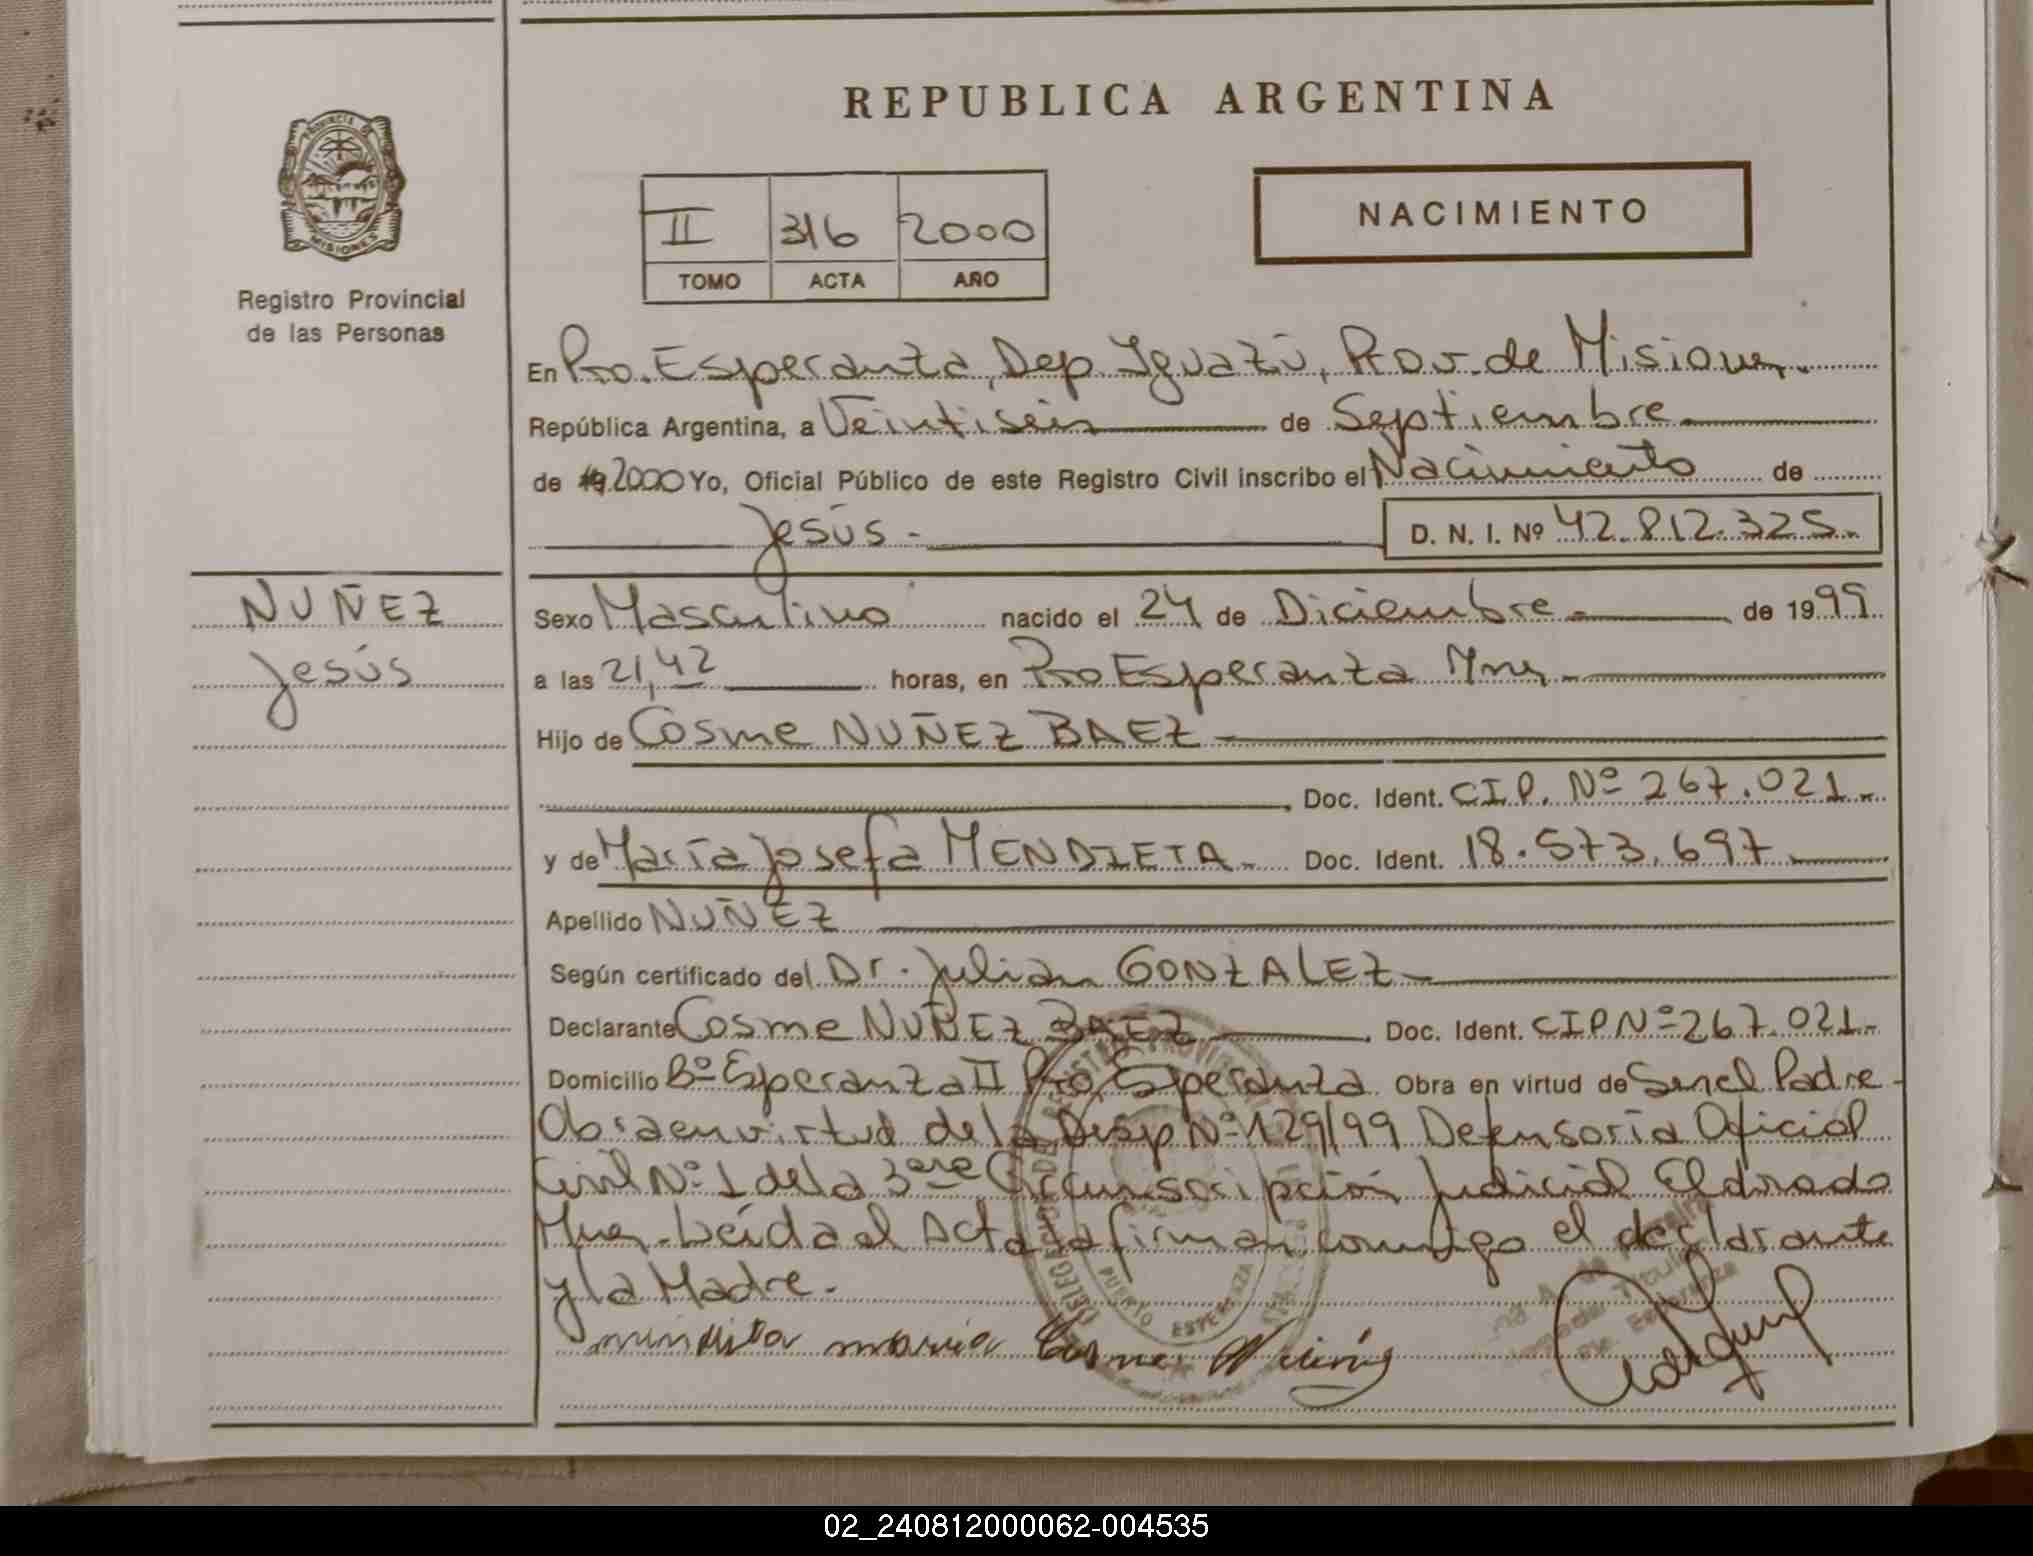 REPUBLICA ARGENTINA
PROVINCIA DE
MISIONES
Registro Provincial
de las Personas
II 316 2000
TOMO ACTA AÑO
NACIMIENTO
En Pto. Esperanza, Dep. Iguazú, Prov. de Misiones.
República Argentina, a Veintiséis de Septiembre
de 19 2000 Yo, Oficial Público de este Registro Civil inscribo el Nacimiento de
Jesús.-
D. N. I. Nº 42.812.325.-
NUÑEZ
Jesús
Sexo Masculino nacido el 24 de Diciembre.- de 1999
a las 21,42 horas, en Pto Esperanza Mnes.-
Hijo de Cosme NUÑEZ BAEZ.-
Doc. Ident. C.I.P. Nº 267.021.-
y de María Josefa MENDIETA.- Doc. Ident. 18.573.697.-
Apellido NUÑEZ
Según certificado del Dr. Julian GONZALEZ.-
Declarante Cosme NUÑEZ BAEZ Doc. Ident. CIP Nº 267.021.-
Domicilio Bº Esperanza II Pto Esperanza Obra en virtud de Ser el Padre.-
Obra en virtud de la Disp Nº 129/99 Defensoría Oficial
Civil Nº 1 de la 3era Circunscripción Judicial Eldorado
Mnes.- Leída el Acta la firman conmigo el declarante
y la Madre.-
PUERTO ESPERANZA
mindieta maria Cosme
02_240812000062-004535